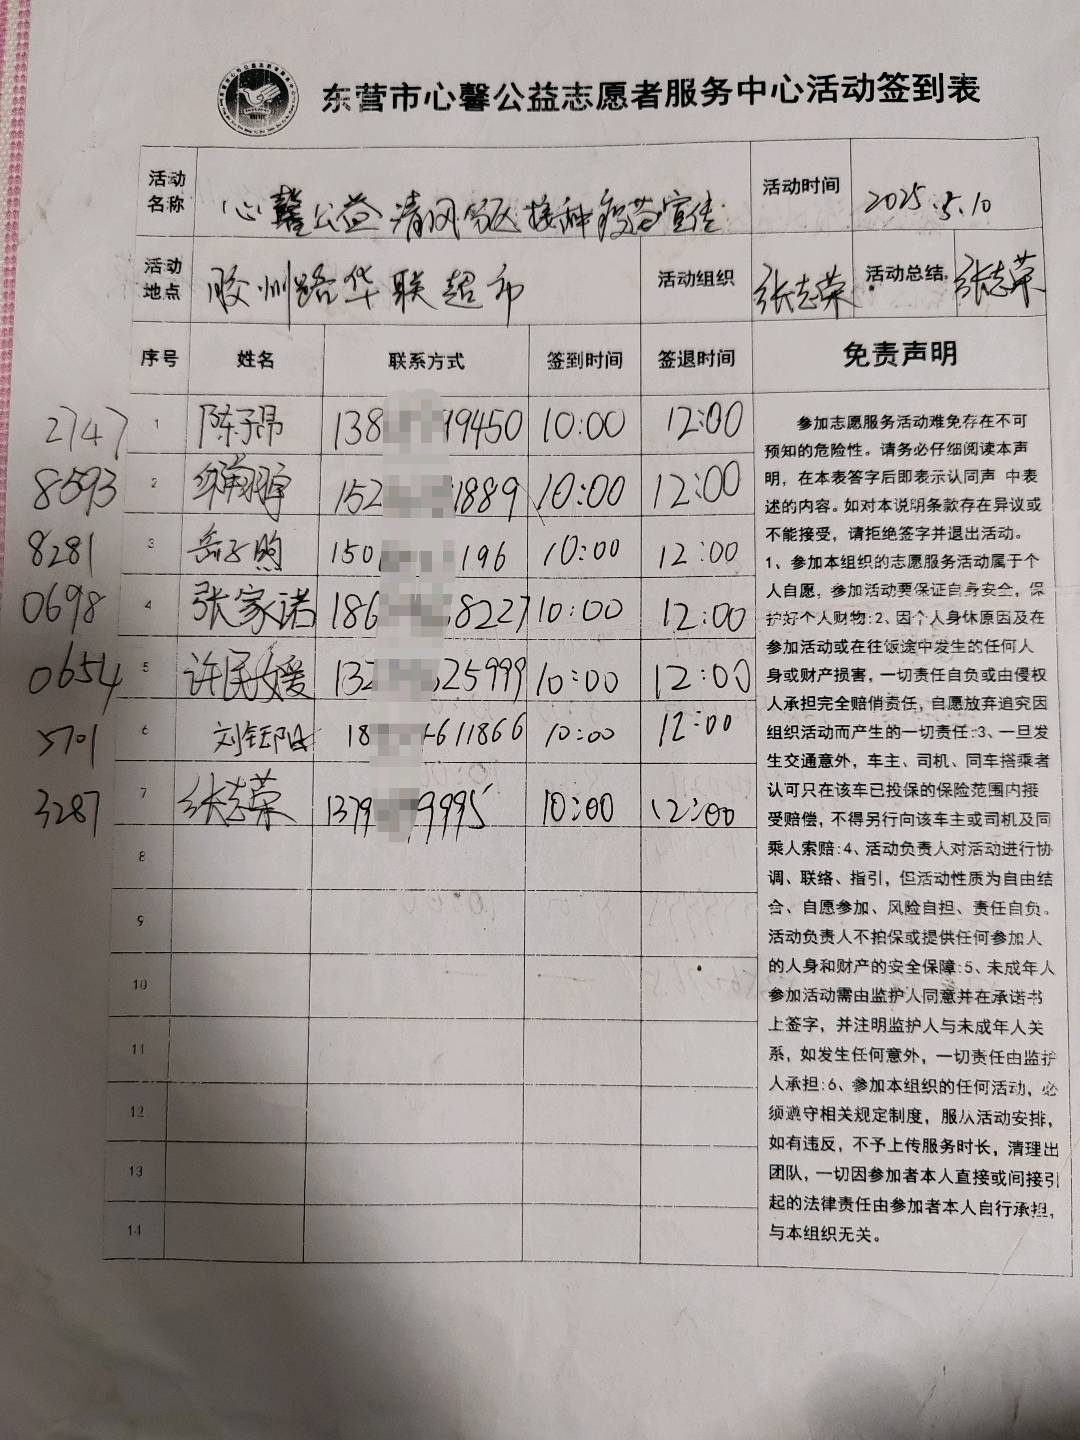 东营市心馨公益志愿者服务中心活动签到表
活动名称 心馨公益清风窝区接种疫苗宣传 活动时间 2025.5.10
活动地点 胶州路华联超市 活动组织 张志荣 活动总结 张志荣
序号 姓名 联系方式 签到时间 签退时间 免责声明
2747 1 陈子昂 138 19450 10:00 12:00
8593 2 152 1889 10:00 12:00
8281 3 岳子煦 150 196 10:00 12:00
0698 4 张家诺 186 8227 10:00 12:00
0654 5 许民媛 132 25999 10:00 12:00
5701 6 刘钰阳 18 611866 10:00 12:00
3287 7 张志荣 1379 9995 10:00 12:00
8
9
10
11
12
13
14
参加志愿服务活动难免存在不可
预知的危险性。请务必仔细阅读本声
明，在本表签字后即表示认同声 中表
述的内容。如对本说明条款存在异议或
不能接受，请拒绝签字并退出活动。
1、参加本组织的志愿服务活动属于个
人自愿，参加活动要保证自身安全，保
护好个人财物:2、因个人身休原因及在
参加活动或在往饭途中发生的任何人
身或财产损害，一切责任自负或由侵权
人承担完全赔俏责任，自愿放弃追究因
组织活动而产生的一切责任:3、一旦发
生交通意外，车主、司机、同车搭乘者
认可只在该车已投保的保险范围内接
受赔偿，不得另行向该车主或司机及同
乘人索赔:4、活动负责人对活动进行协
调、联络、指引，但活动性质为自由结
合、自愿参加、风险自担、责任自负。
活动负责人不拍保或提供任何参加人
的人身和财产的安全保障:5、未成年人
参加活动需由监护人同意并在承诺书
上签字，并注明监护人与未成年人关
系，如发生任何意外，一切责任由监护
人承担:6、参加本组织的任何活动，必
须遵守相关规定制度，服从活动安排，
如有违反，不予上传服务时长，清理出
团队，一切因参加者本人直接或间接引
起的法律责任由参加者本人自行承担，
与本组织无关。